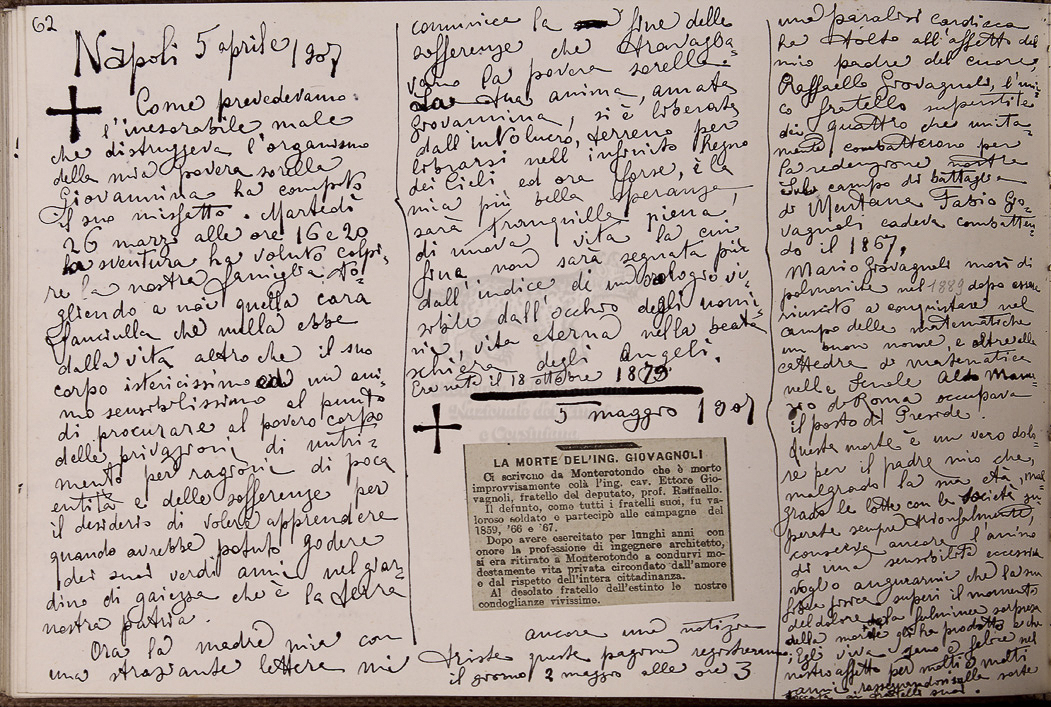 62
Napoli 5 aprile 1907
Come prevedevamo
l'inesorabile male
che distruggeva l'organismo
della mia povera sorella
Giovannina ha compito
il suo misfatto. Martedì
26 marzo alle ore 16 e 20
la sventura ha voluto colpi-
re la nostra famiglia to-
gliendo a noi quella cara
fanciulla che nulla ebbe
dalla vita altro che il suo
corpo istericissimo ed un ani-
mo sensibilissimo al punto
di procurare al povero corpo
delle privazioni di nutri-
mento per ragioni di poca
entità e delle sofferenze per
il desiderio di volere apprendere
quando avrebbe potuto godere
dei suoi verdi anni nel giar-
dino di gaiezza che è la terra
nostra patria.
Ora la madre mia con
una straziante lettera mi
comunica la fine delle
sofferenze che travaglia-
vano la povera sorella.
La sua anima, amata
Giovannina, si è liberata
dall'involucro, terreno per
librarsi nell'infinito Regno
dei Cieli ed ora forse, è la
mia più bella speranza
sarà tranquilla piena,
di nuova vita la cui
fine non sarà segnata più
dall'indice di un orologio vi-
sibile dall'occhio degli uomi-
ni, vita eterna nella beata
schiera degli Angeli.
Era nata il 18 ottobre 1879.
5 maggio 1907
LA MORTE DEL'ING. GIOVAGNOLI
Ci scrivono da Monterotondo che è morto
improvvisamente colà l'ing. cav. Ettore Gio-
vagnoli, fratello del deputato, prof. Raffaello.
Il defunto, come tutti i fratelli suoi, fu va-
loroso soldato e partecipò alle campagne del
1859, '66 e '67.
Dopo avere esercitato per lunghi anni con
onore la professione di ingegnere architetto,
si era ritirato a Monterotondo a condurvi mo-
destamente vita privata circondato dall'amore
e dal rispetto dell'intera cittadinanza.
Al desolato fratello dell'estinto le nostre
condoglianze vivissime.
ancora una notizia
triste queste pagine registreranno
il giorno 2 maggio alle ore 3
una paralisi cardiaca
ha tolto all'affetto del
mio padre del cuore,
Raffaello Giovagnoli, l'uni-
co fratello superstite
dei quattro che unita-
mente combatterono per
la redenzione nostra
Sul campo di battaglia
di Mentana Fabio Gio-
vagnoli cadeva combatten-
do il 1867.
Mario Giovagnoli morì di
polmonite nel 1889 dopo essere
riuscito a conquistare nel
campo delle matematiche
un buon nome, e oltre alla
cattedra di matematica
nelle Scuole Aldo Manu-
zio di Roma occupava
il posto di Preside
Questa morte è un vero dolo-
re per il padre mio che,
malgrado la sua età, mal-
grado le lotte con la Società su-
perate sempre trionfalmente,
conserva ancora l'animo
di una sensibilità eccessiva
voglio augurarmi che la sua
fibra fisica superi il momento
del dolore che la fulminea sorpresa
della morte gli ha prodotto e che
Egli viva sano e felice nel
nostro affetto per molti e molti
anni, rassegnandosi alla sorte
toccata ai fratelli suoi.